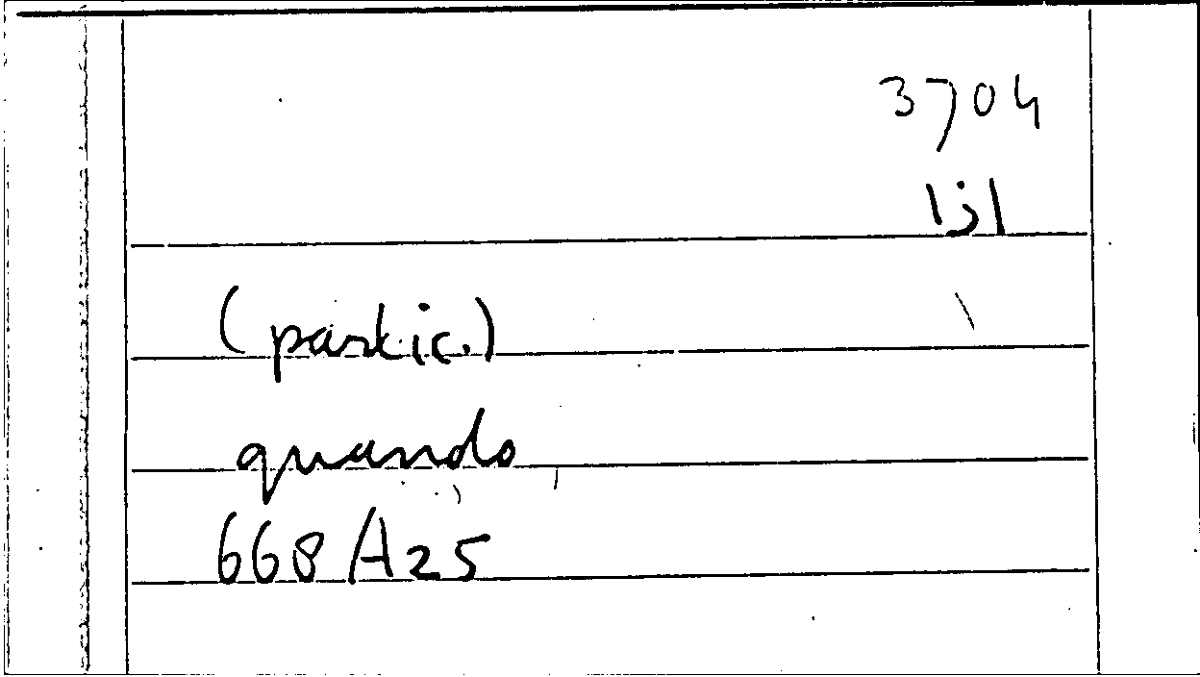 3704
إذا
(partic.)
quando
668 A 25